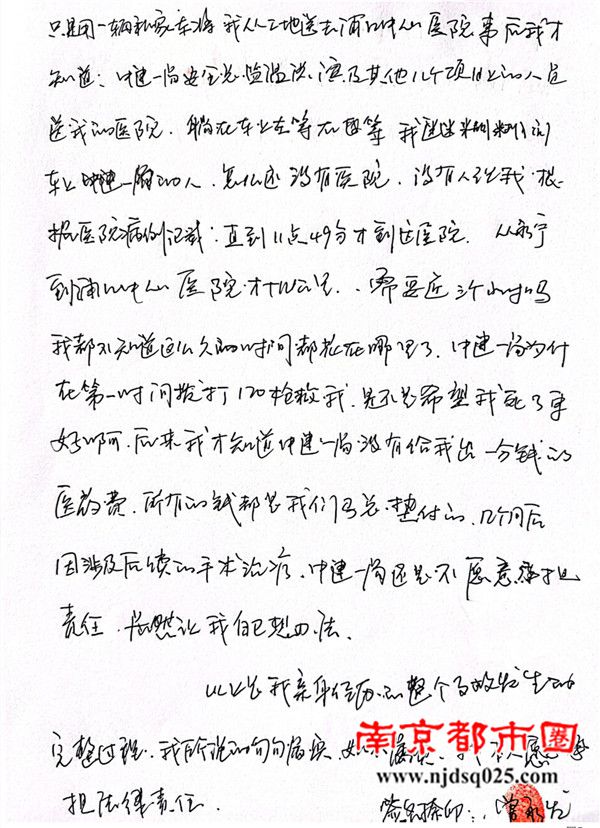 只是用一辆私家车将我从工地送去浦口中心医院事后我才
知道：中建一局安全总监温洪滨及其他几个项目上的人员
送我的医院．躺在车上左等右等我迷迷糊糊问
车上中建一局的人．怎么还没有医院．没有人理我．根
据医院病例记载：直到11点49分才到达医院．从永宁
到浦口中心医院．才十几公里．需要近三个小时吗
我都不知道这么久的时间都花在哪里了．中建一局为什
在第一时间拨打120抢救我．是不是希望我死了更
好啊．后来我才知道中建一局没有给我出一分钱的
医药费．所有的钱都是我们马总．垫付的．几个月后
因涉及后续的手术治疗．中建一局还是不愿意承担
责任．居然让我自己想办法．
以上是我亲身经历的整个事故发生的
完整过程．我所说的句句属实 如 愿
担法律责任．
签名捺印：曾
南京都市圈
www.njdsq025.com